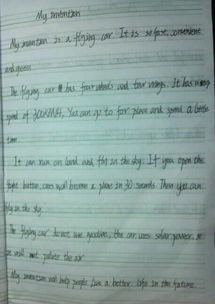 My invention
My invention is a flying car. It is so fast, convenient
and green.
The flying car has four wheels and four wings. It has a
speed of 300KM/H. You can go to far place and spend a little
time.
It can run on land and fly in the sky. If you open the
button, cars will become a plane in 30 seconds. Then you can
fly in the sky.
The flying car do not use gasoline, the car uses solar power, so
it will not pollute the air.
My invention will help people live a better life in the future.